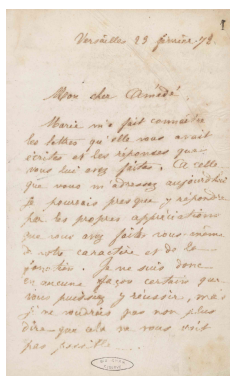 Versailles 23 février 78.
Mon cher Amédé,
Marie m'a fait connaître
les lettres qu'elle vous avait
écrites et les réponses que
vous lui avez faites. A celle
que vous m'adressez aujourd'hui
je pourrais presque y répondre
par les propres appréciations
que vous avez faites vous-même
de votre caractère et de la
Je ne suis donc
en aucune façon certain que
vous puissiez y réussir, mais
je ne voudrais pas non plus
dire que cela ne vous soit
pas possible